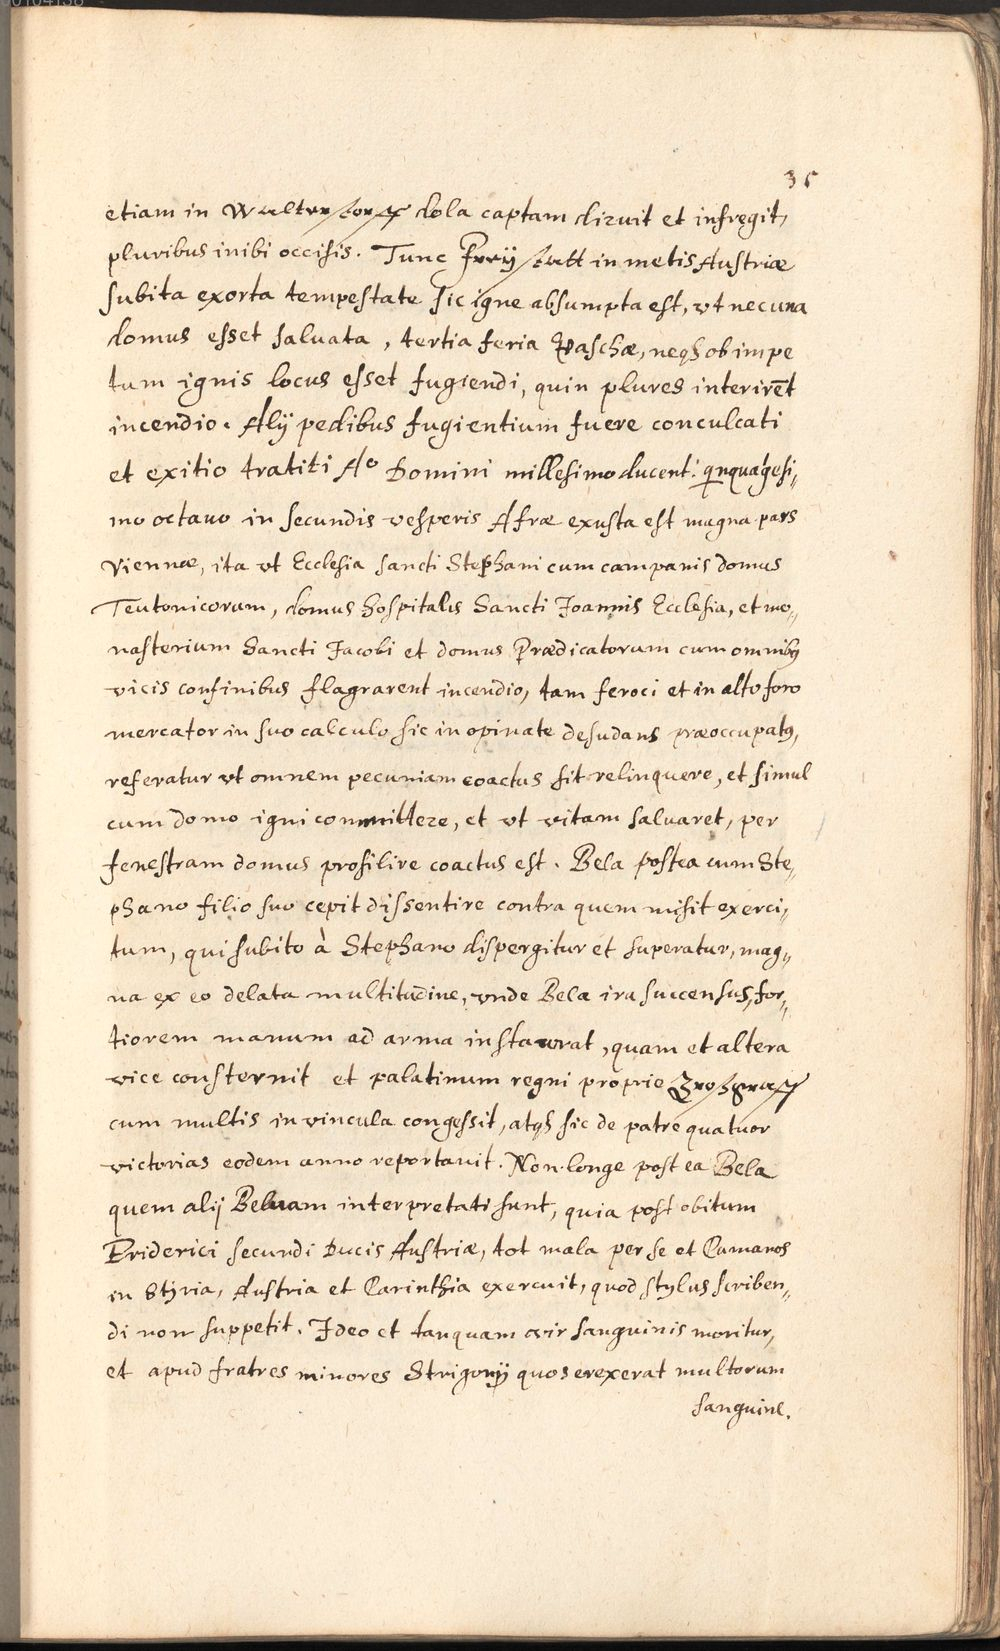 35
etiam in Walterstorff dola captam diruit et infregit,
pluribus inibi occisis. Tunc Freystatt in metis Austriæ
subita exorta tempestate sic igne absumpta est, vt nec una
domus esset saluata, tertia feria Paschæ, neqꝫ ob impe
tum ignis locus esset fugiendi, quin plures interirēt
incendio. Alij pedibus fugientium fuere conculcati
et exitio tratiti Aº Domini millesimo ducent: qinquagesi„
mo octauo in secundis vesperis Afræ exusta est magna pars
Viennæ, ita vt Ecclesia sancti Stephani cum campanis domus
Teutonicorum, domus hospitalis Sancti Joannis Ecclesia, et mo„
nasterium Sancti Jacobi et domus Prædicatorum cum omnibꝰ
vicis confinibus flagrarent incendio, tam feroci et in alto foro
mercator in suo calculo sic inopinate desudans præoccupatꝰ,
referatur vt omnem pecuniam coactus sit relinquere, et simul
cum domo igni committere, et vt vitam saluaret, per
fenestram domus prosilire coactus est. Bela postea cum Ste„
phano filio suo cepit dissentire contra quem misit exerci„
tum, qui subito à Stephano dispergitur et superatur, mag„
na ex eo delata multitudine, vnde Bela ira succensus, for„
tiorem manum ad arma instaurat, quam et altera
vice consternit et palatinum regni proprie Großgraff
cum multis in vincula congessit, atqꝫ sic de patre quatuor
victorias eodem anno reportauit. Non longe post ea Bela
quem alij Beluam interpretati sunt, quia post obitum
Friderici secundi Ducis Austriæ, tot mala per se et Cumanos
in Styria, Austria et Carinthia exercuit, quod stylus scriben„
di non suppetit. Ideo et tanquam vir sanguinis moritur,
et apud fratres minores Strigonij quos erexerat multorum
sanguine.